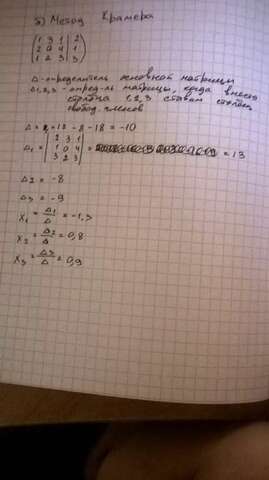 5) Метод Крамера
(1 3 1 | 2
2 0 4 | 1
1 2 3 | 3)
Δ - определитель основной матрицы
Δ1,2,3 - опред-ль матрицы, когда вместо
столбца 1,2,3 ставим столбец
свобод. членов
Δ = 12 - 8 - 18 = -10
Δ1 = |2 3 1
1 0 4
3 2 3| = = 13
Δ2 = -8
Δ3 = -9
X1 = Δ1/Δ = -1,3
X2 = Δ2/Δ = 0,8
X3 = Δ3/Δ = 0,9